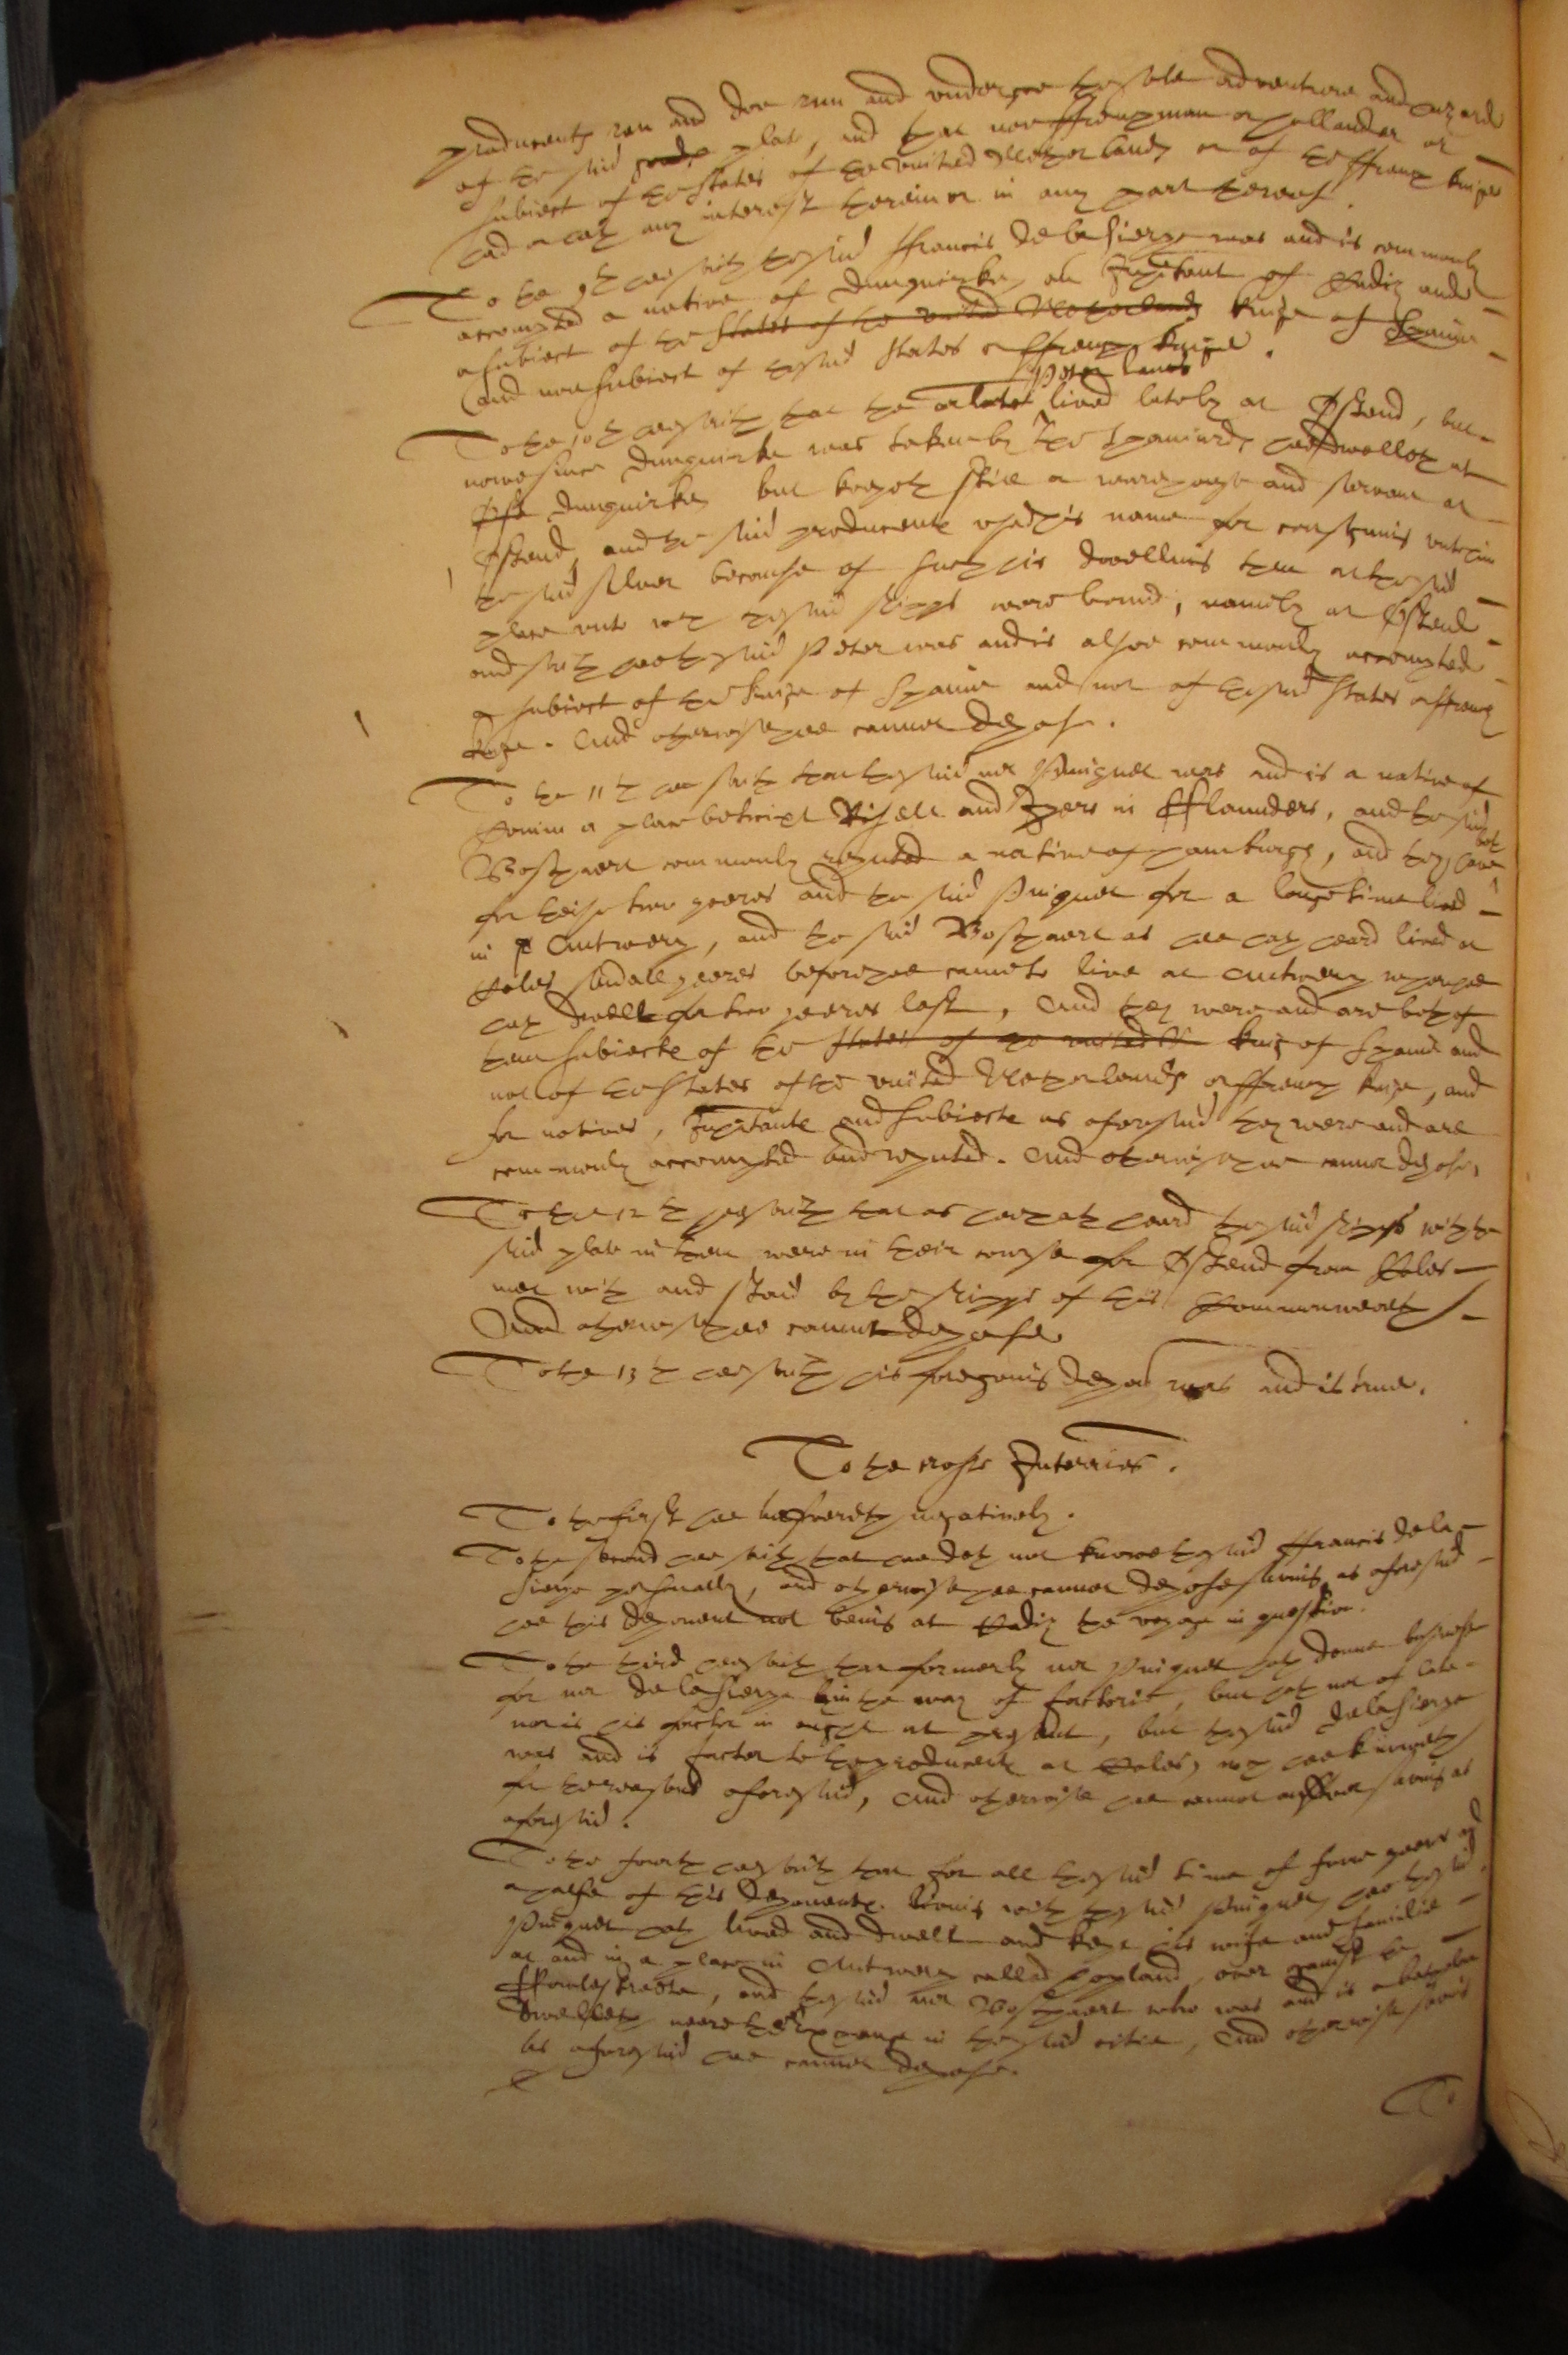 producents ran and doe run and undergoe the sole adventure and hazard
of the said goods plate, and that noe ffrenchman or hollander or
subiect of the States of the united Netherlands or of the ffrench kinge
had or hath any interest therein or in any part thereof.
To the 9th hee saith the said ffrancis de la Sierge was and is commonly
accompted a native of Dunquirke, an Inhitant of Cadiz and
a subiect of the States of the united Netherlands kinge of Spaine
and noe subiect of the said States or ffrench kinge.
Peter
To the 10th hee saith that the arlate lived lately at Ostend, but
nowe since Dunquirke was taken by the Spaniards hee dwelleth at
Ost Dunquirke, but keepeth still a warehouse and servant at
Ostend, and the said producents used his name for consigning unto him
the said silver because of such his dwelling then at the said
place unto wch the said shipps were bound, namely at Ostend
and saith hee the said Peter was and is alsoe commonly accompted
a subiect of the kinge of Spaine and not of the said States or ffrench
kinge. And otherwise hee cannot depose.
To the 11th hee saith that the said mr Principal was and is a native of
Comin a place betwixt Rissell and Ipers in fflaunders, and the said
Boshaert commonly reputed a native of hamburgh, and they have
both
for theise two yeeres and the said for a longe time lived
in Antwerp, and the said Boshaert as hee hath heard lived at
Cales severall yeeres before hee came to live at Antwerp where hee
hath dwelt for two yeeres last, And they were and are both of
them subiects of the States of the united king of Spaine and
not of the States of the united Netherlands or ffrench kinge, and
for natives, Inhitants and subiects as aforesaid they were and are
commonly accompted and reputed. And otherwise hee cannot depose.
To the 12th hee saith that as hee hath heard the said shipps with the
said plate in them were in their course for Ostend from Cales
met with and staid by the shipps of this Commonwealth
And otherwise hee cannot depose
To the 13th hee saith his foregoing deposition was and is true.
To the crosse Interries.
To the first hee answereth negatively.
To the second hee saith that hee doth not knowe the said ffrancis de la
Sierge personally, and otherwise hee cannot depose saving as aforesaid
hee this deponent not being at Cadiz the voyage in question.
To the third hee saith that formerly mr hath donne businesse
for mr de la Sierge in the way of factorie, but hath not of late
nor is his factor in ought at present, but the said de la Sierge
was and is factor to the producents at Cales, wch hee knoweth
for the reasons aforesaid, And otherwise hee cannot answer saving as
aforesaid.
To the fourth hee saith that for all the said time of foure yeeres and
a halfe of this deponents living with the said hee the said
hath lived and dwelt and kept his wife and familie
at and in a place in Antwerp called hopland, over against the
streete, and the said mr Boshaert who was and is a batchelor
dwelleth neere the Exchange in the said citie, And otherwise saving
as aforesaid hee cannot depose.
To